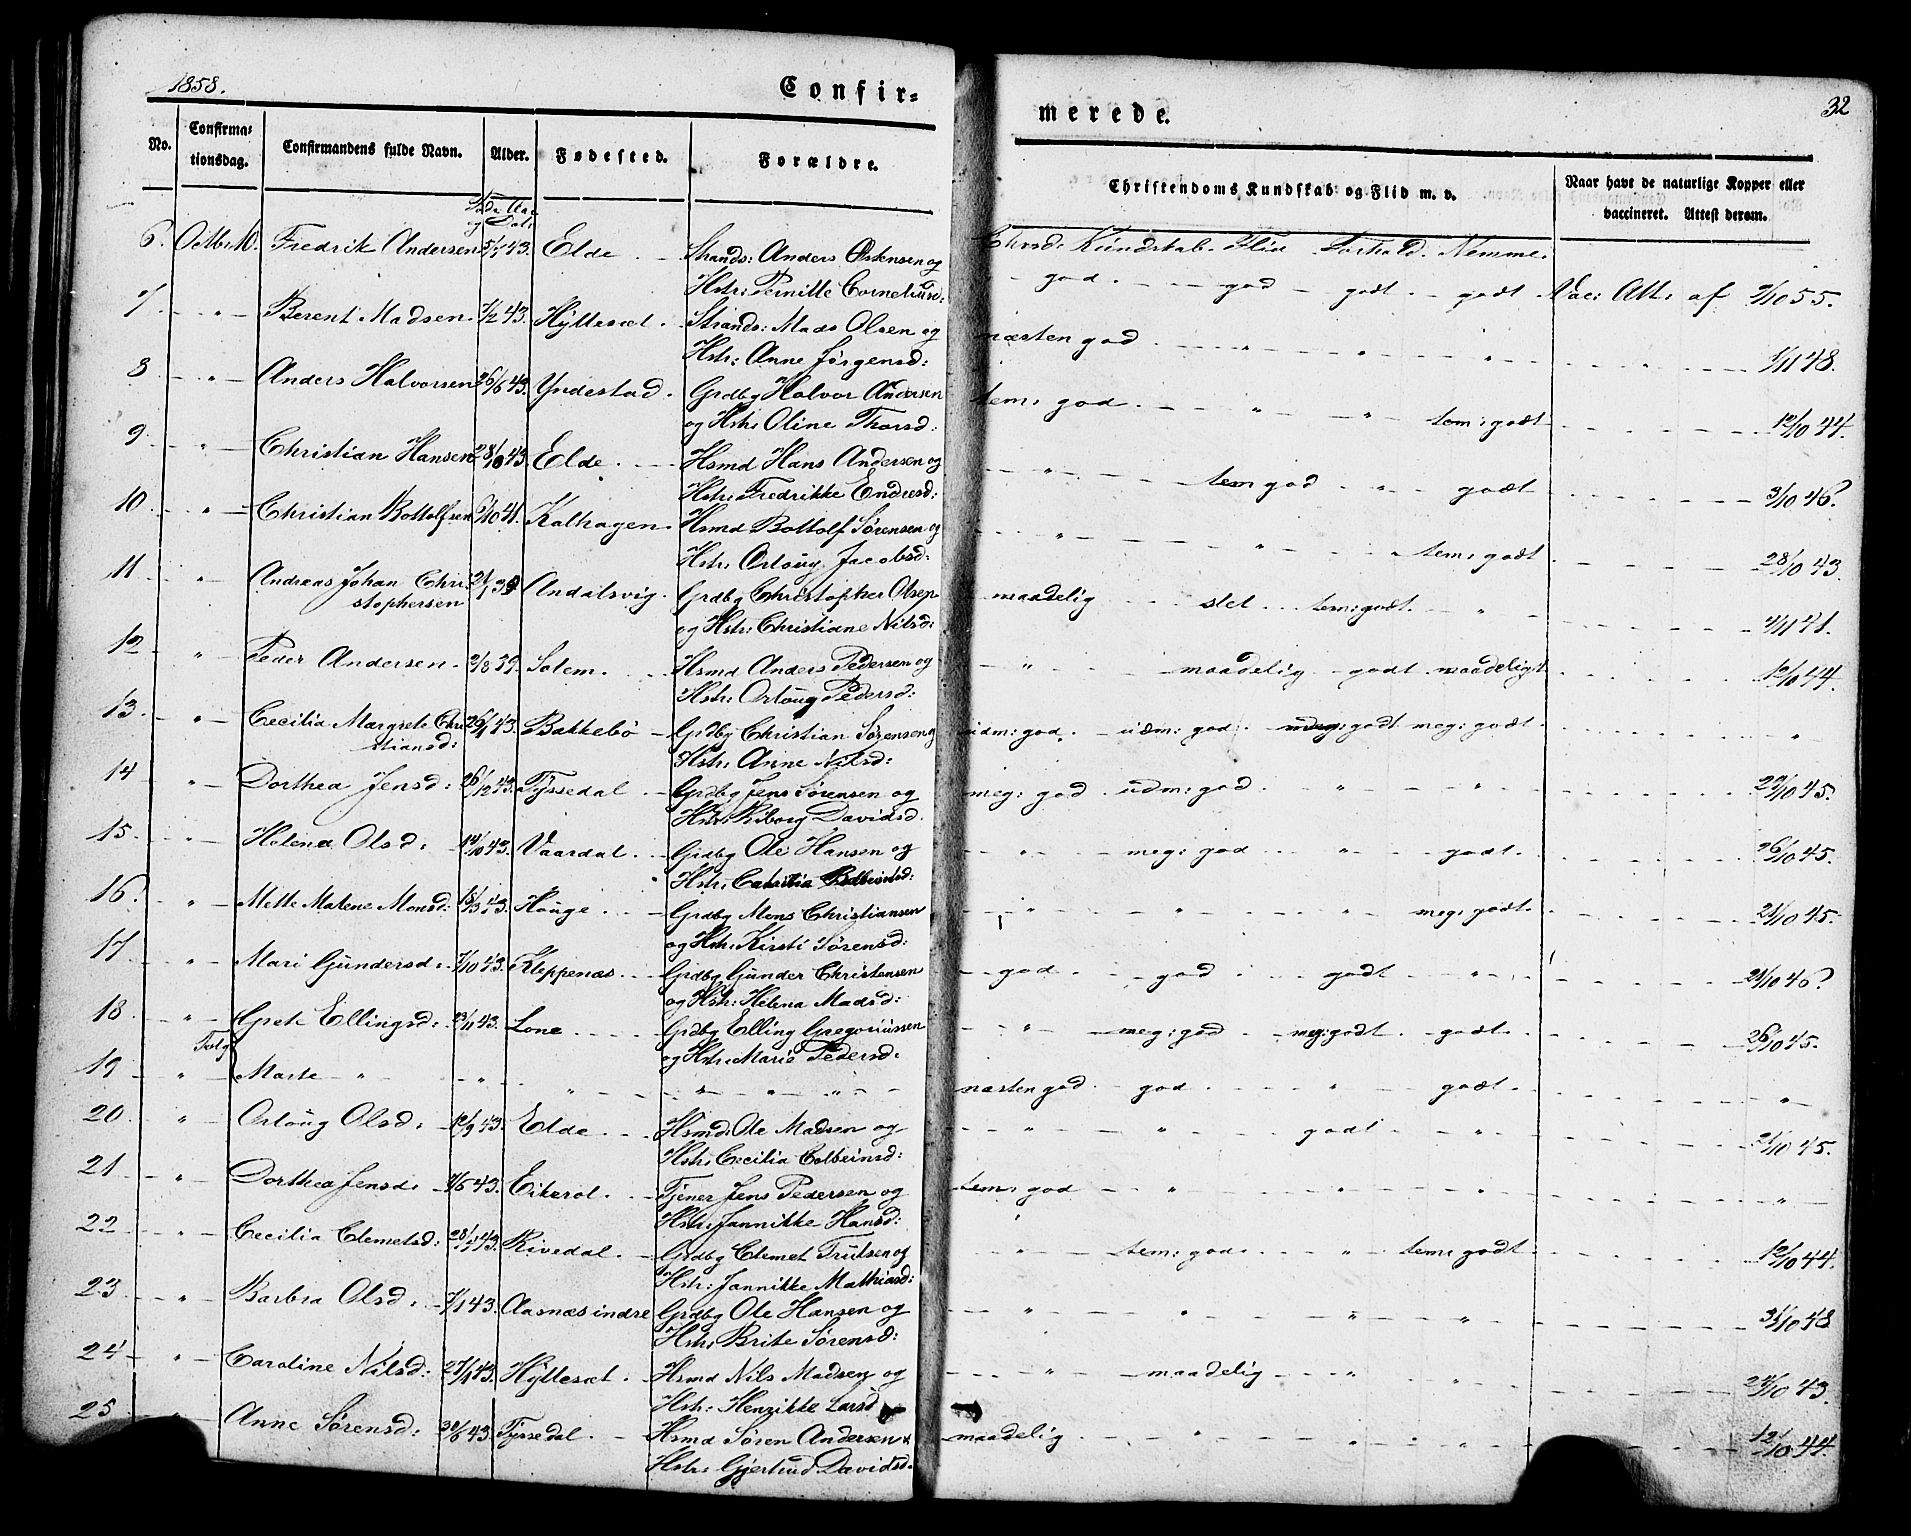 1858.
Confir= merede.
32
No. Confirma= tionsdag. Confirmandens fulde Navn. Alder. Fødested. Forældre. Christendoms Kundskab og Flid m. v. Naar havt de naturlige Kopper eller vaccineret. Attest derom.
Føds: Aar og Dat:
Chrsd: Kundskab. Flid Forhold. Nemme.
6. Octb: 10. Fredrik Andersen 5/7 43. Elde. Strands: Anders Østensen og
Hstr: Pernille Corneliusd: god god godt godt Vac: Att: af 2/10 55.
7. " Berent Madsen. 1/2 43. Hyllesæt. Strands: Mads Olsen og
Hstr: Anne Jørgensd: næsten god " " " 1/11 48.
8 " Anders Halvorsen 26/6 43. Yndestad. Grdbg Halvor Andersen
og Hstr: Oline Thorsd: tem: god " " tem: godt 12/10 44.
9 " Christian Hansen 28/10 43. Elde. Hsmd Hans Andersen og
Hstr: Fredrikke Endresd: " tem god " godt 3/10 46.
10 " Christian Bottolfsen 6/10 41. Kalhagen. Hsmd Bottolf Sørensen og
Hstr: Orloug Jacobsd: " " " tem: godt 28/10 43.
11 " Andreas Johan Chri-
stophersen 21/1 39 Andalsvig. Grdbg Christopher Olsen
og Hstr: Christiane Nilsd: maadelig slet tem: godt. " 2/11 41.
12 " Peder Andersen. 2/8 39. Solem. Hsmd Anders Pedersen og
Hstr: Orloug Pedersd: " maadelig godt maadeligt 12/10 44.
13. " Cecilia Margrete Chri-
stiansd: 26/1 43. Bakkebø Grdbg Christian Sørensen og
Hstr: Anne Nilsd: udm: god. udm: god. meg: godt meg: godt. "
14 " Dorthea Jensd: 26/12 43. Tyssedal Grdbg Jens Sørensen og
Hstr: Riborg Davidsd. meg: god udm: god " " 22/10 45.
15. " Helena Olsd: 14/10 43. Vaardal. Grdbg Ole Hansen og
Hstr: " meg: god " godt. 26/10 45.
16. " Mette Malene Monsd: 18/3 43. Houge. Grdbg Mons Christiansen
og Hstr: Kirsti Sørensd: " " " meg: godt. 21/10 45.
17 " Mari Gundersd: 7/10 43. Kleppenæs. Grdbg Gunder Christensen
og Hstr: Helena Madsd: god god godt " 21/10 46.
18 " Grete Ellingsd: 23/11 43. Lone Grdbg Elling Gregoriussen
og Hstr: Marie Pedersd: " meg: god meg: godt godt. 26/10 45.
19 " Marte " " " " " " " næsten god. god " godt. "
20. " Orloug Olsd: 12/9 43. Elde. Hsmd: Ole Madsen og
Hstr: Cecilia Colbeinsd: " " godt " 21/10 45.
21 " Dorthea Jensd. 4/5 43. Eikerol. Tjener Jens Pedersen og
Hstr: Jannikke Hansd: tem: god " " " "
22 " Cecilia Clemetsd: 28/7 43. Rivedal. Grdbg Clemet Trulsen og
Hstr: Jannikke Mathiasd: " tem: god. " tem: godt 12/10 44.
23. " Barbra Olsd: 7/1 43. Aasnæs indre Grdbg Ole Hansen og
Hstr: Brite Sørensd: " " " " 31/10 48
24 " Caroline Nilsd: 27/4 43. Hyllesæt. Hsmd Nils Madsen og
Hstr: Henrikke Larsd " maadelig " " 24/10 43.
25 " Anne Sørensd: 30/6 43. Tyssedal. Hsmd Søren Andersen &
Hstr: Gjertrud Davidsd. maadelig " " " 12/10 44.